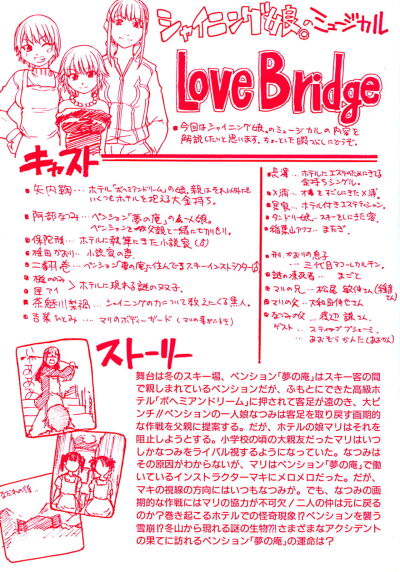 シャイニング娘。のミュージカル
Love Bridge
・今回はシャイニング娘。のミュージカルの内容を
解説したいと思います。ちょっとした暇つぶしにどうぞ。
キャスト
・矢内鞠…ホテル「ボヘミアンドリーム」の娘。親はそれ以外にも
いくつもホテルを抱える大金持ち。
・阿部なつみ…ペンション「夢の庵」の一人娘。
ペンションを父親と一緒に切りもり。
・保陀形…ホテルに執筆にきた小説家
かおり…小説家の妻
・二翻巻…ペンション「夢の庵」に住んでるスキーインストラクター
ホテルに現れる謎の双子。
…シャイニングの力について教えてくれる黒人。
・吉菜ひとみ…マリのボディーガード
…ホテルにエステのためにきてる
金持ちシングル。
…ホテル付きエステティシャン。
・タンドリー娘…スキーをしにきた客。
三代目マコーレカルキン。
・謎の透
・マリの兄…松尾
・マリの父…大和田伸也さん
・なつみの父…渡辺 謙さん
ゲスト…スティーヴブシェーミ
ストーリー
舞台は冬のスキー場、ペンション「夢の庵」はスキー客の間
で親しまれているペンションだが、ふもとにできた高級ホ
テル「ボヘミアンドリーム」に押されて客足が遠のき、大ピ
ンチ!!ペンションの一人娘なつみは客足を取り戻す画期的
な作戦を父親に提案する。だが、ホテルの娘マリはそれを
阻止しようとする。小学校の頃の大親友だったマリはいつ
しかなつみをライバル視するようになっていた。なつみは
その原因がわからないが、マリはペンション「夢の庵」で働
いているインストラクターマキにメロメロだった。だが、
マキの視線の方向にはいつもなつみが。でも、なつみの画
期的な作戦にはマリの協力が不可欠!二人の仲は元に戻
るのか?巻き起こるホテルでの怪奇現象!?ペンションを襲う
雪崩!?冬山から現れる謎の生物?!さまざまなアクシデント
の果てに訪れるペンション「夢の庵」の運命は?